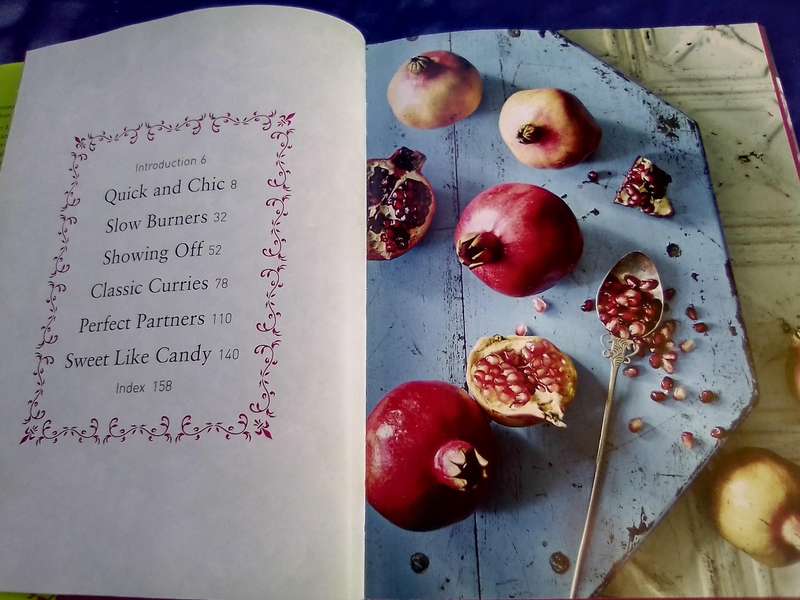 Introduction 6
Quick and Chic 8
Slow Burners 32
Showing Off 52
Classic Curries 78
Perfect Partners 110
Sweet Like Candy 140
Index 158